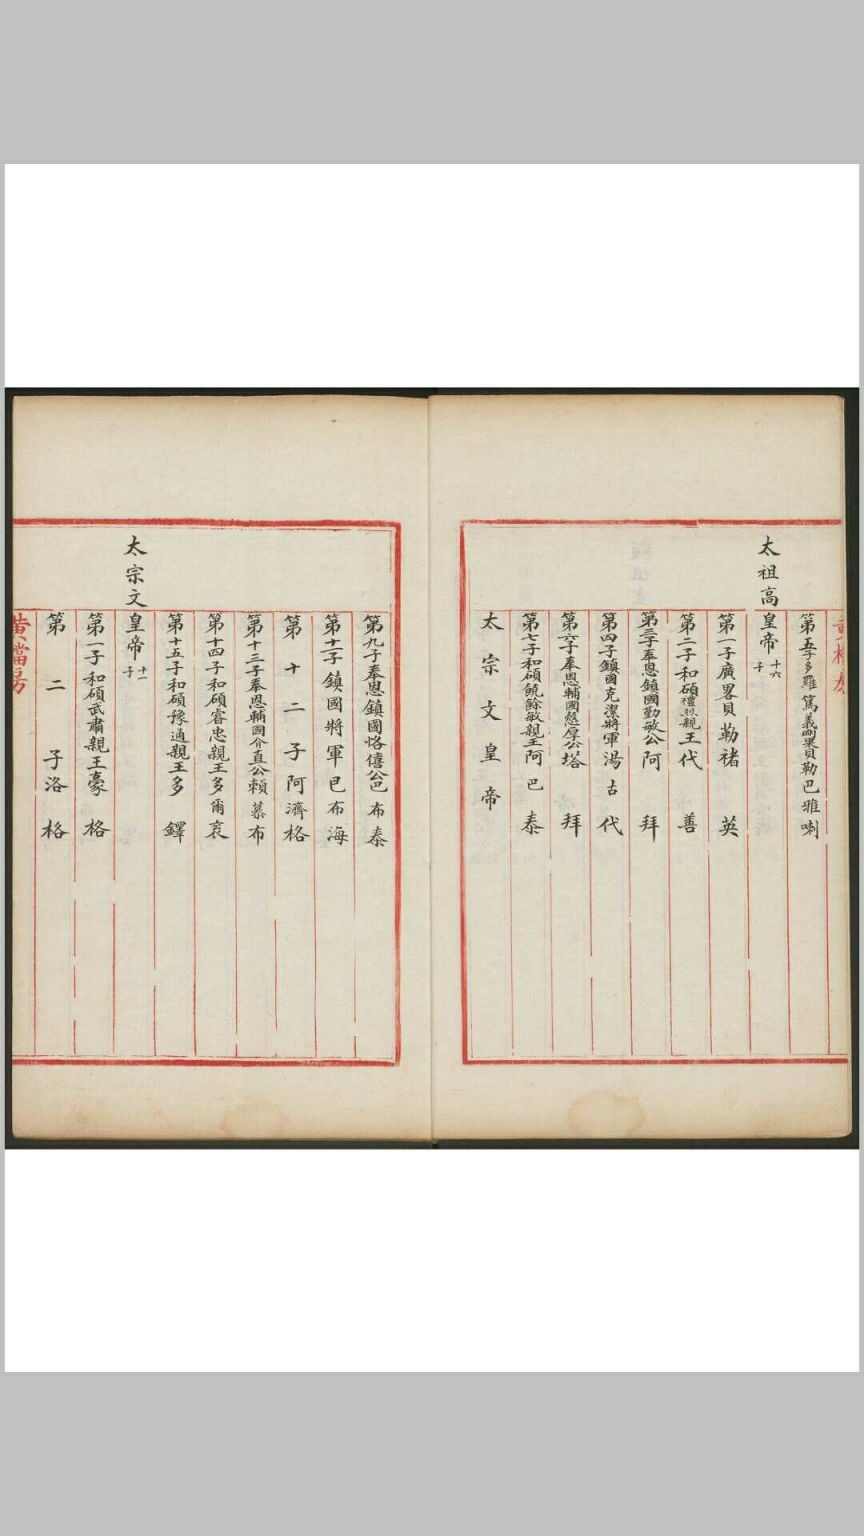 第五子多羅篤義剛果貝勒巴雅喇
太祖高皇帝十六子
第一子廣畧貝勒褚英
第二子和碩禮烈親王代善
第三子奉恩鎮國勤敏公阿拜
第四子鎮國克潔將軍湯古代
第六子奉恩輔國慤厚公塔拜
第七子和碩饒餘敏親王阿巴泰
太宗文皇帝
第九子奉恩鎮國恪僖公巴布泰
第十一子鎮國將軍巴布海
第十二子阿濟格
第十三子奉恩輔國介直公賴慕布
第十四子和碩睿忠親王多爾袞
第十五子和碩豫通親王多鐸
太宗文皇帝十一子
第一子和碩武肅親王豪格
第二子洛格
黃檔房